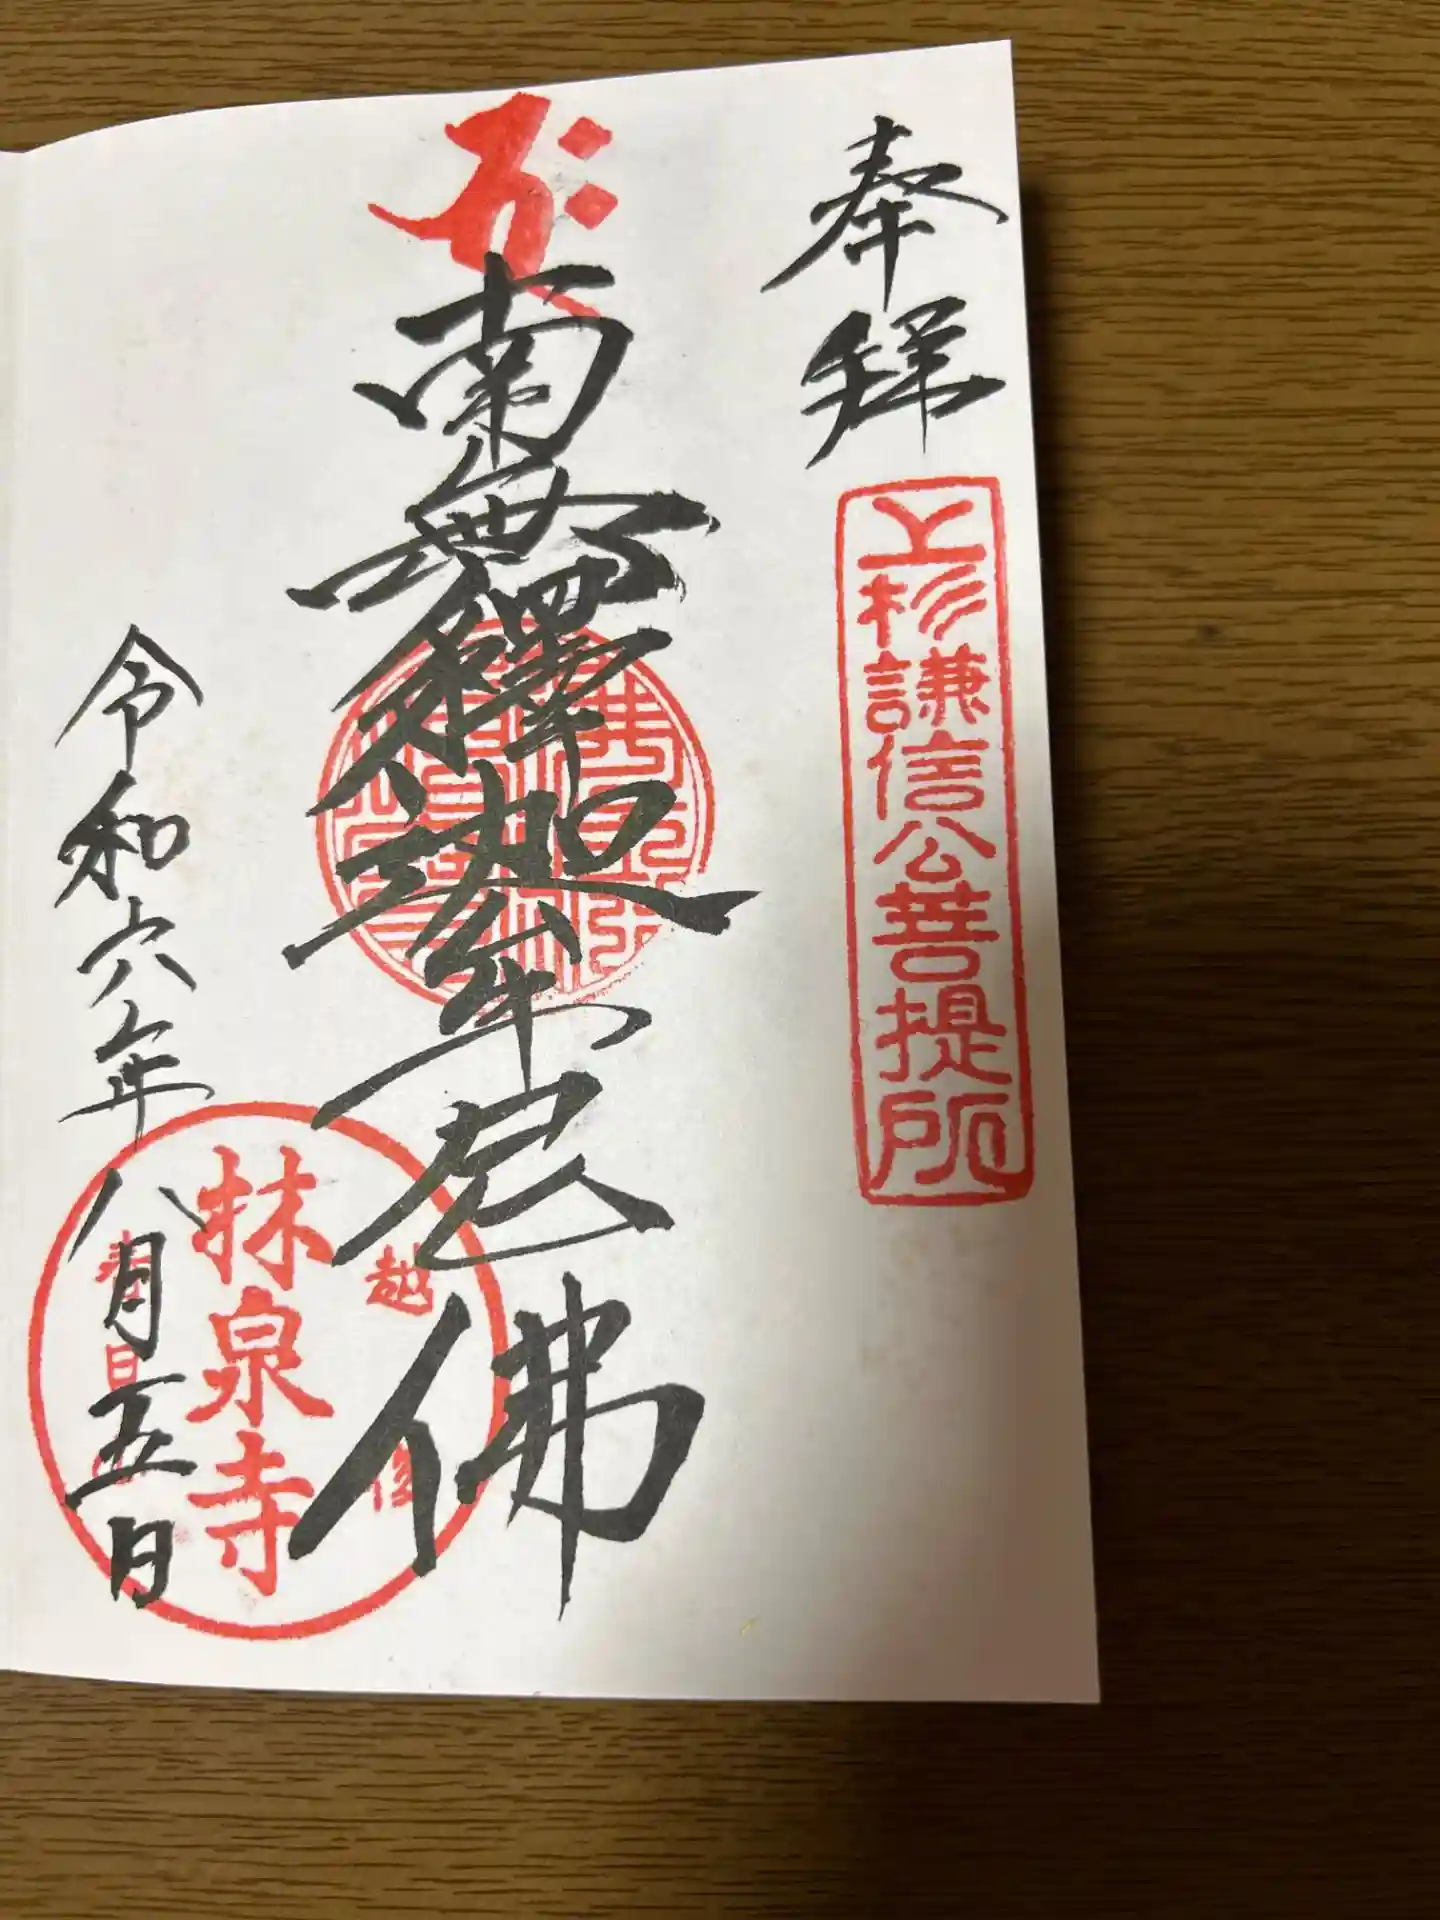 奉拜
上杉謙信公菩提所
南無釋迦牟尼佛
越後
林泉寺
春日山
令和六年八月五日